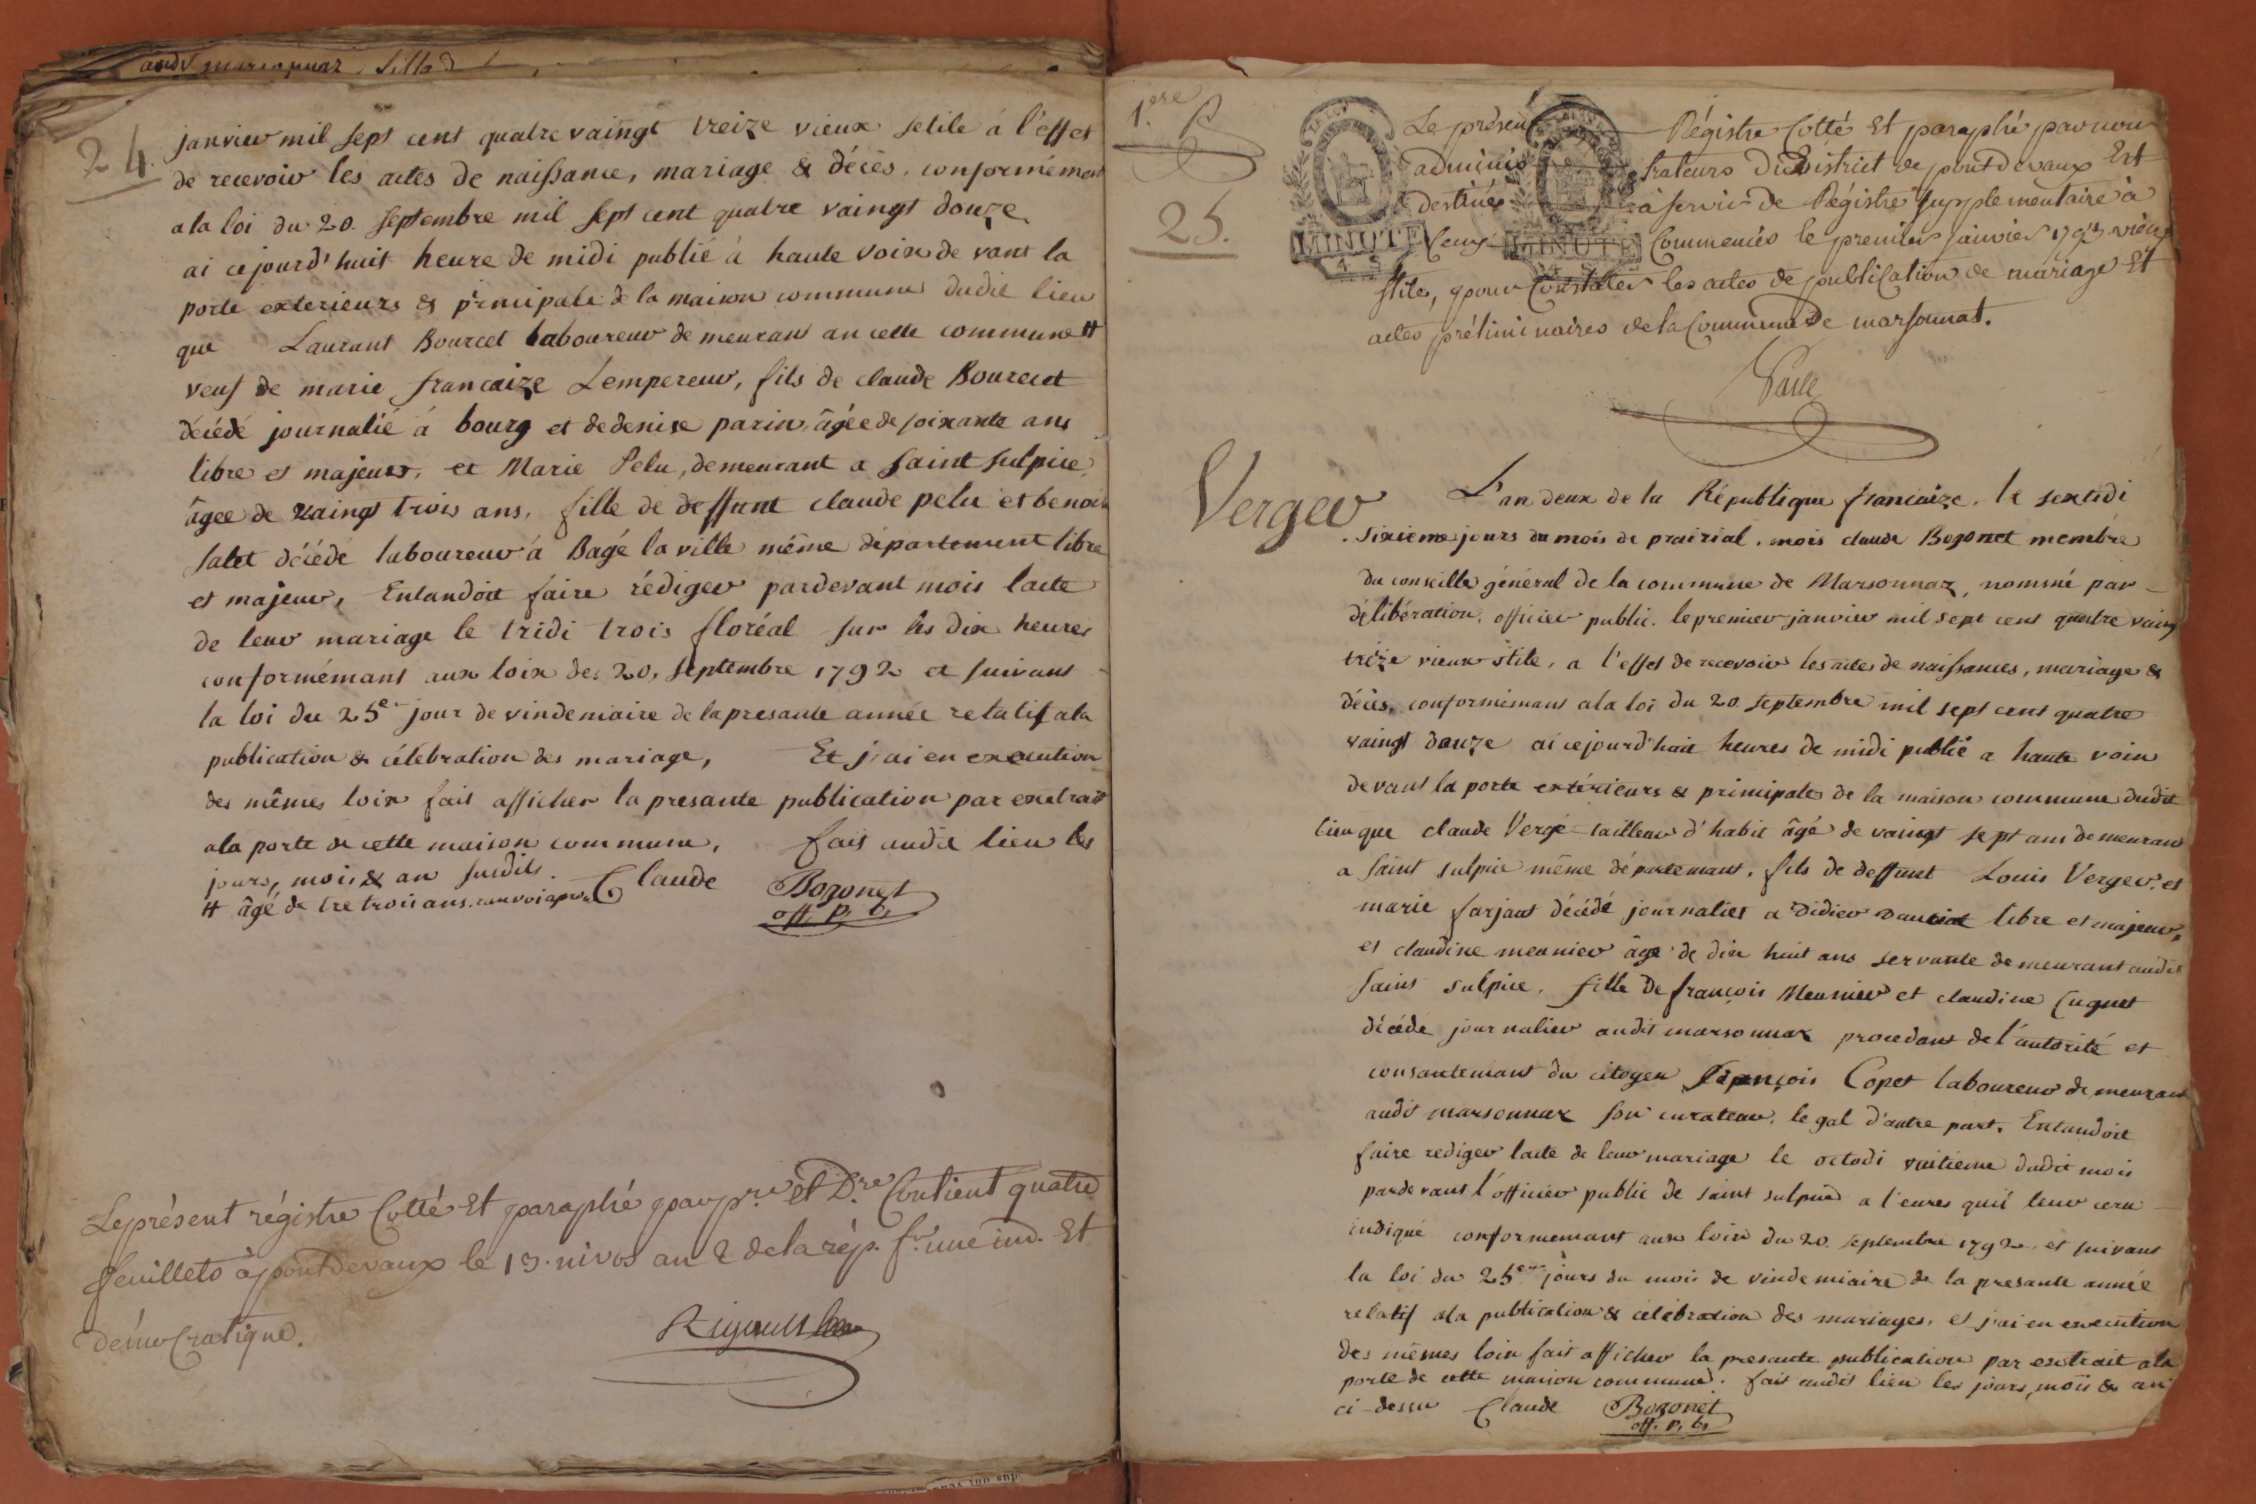 24.
janvier mil sept cent quatre vaingt treize vieux setile à l'effet
de recevoir les actes de naissance, mariage & décès, conformémant
a la loi du 20. septembre mil sept cent quatre vaingt douze
ai cejourd'huit heure de midi publié à haute voix de vant la
porte exterieurs & principale de la maison commune dudit lieu
que Laurant Bourcet laboureur demeurant an cette commune #
veuf de marie francaize Lempereur, fils de claude Bourcet
décédé journalié à bourg et de denise parin, âgée de soixante ans
libre et majeurs, et Marie Pelu, demeurant a Saint Sulpice
âgée de vaingt trois ans, fille de deffunt claude pelu et benoi
salet décédé laboureur à Bagé la ville même département libre
et majeur, Entandoit faire rédiger pardevant mois lacte
de leur mariage le tridi trois floréal sur les dix heures
conformémant aux loix des 20, septembre 1792 et suivant
la loi du 25e jour de vindemiaire de la presante année relatif ala
publication & célébration des mariage, Et j'ai en execution
des mêmes loix fait afficher la presante publication par extrait
ala porte de cette maison commune, fait audit lieu les
jours, mois & an susdits. Claude Bozonet
# âgé de tretrois ans
off. p. b.
Le présent régistre Cotté Et paraphé par pre. et Dre. Contient quatre
feuillets à pontdevaux le 13. nivos an 2 de la rép. fr. une ind. Et
démocratique.
1.ere
25.
Le présent Régistre Cotté Et paraphé par nous
administrateurs du District de pont de vaux Est
destiné à servir de Régistre supplementaire à
Celuy Commencés le premier janvier 1793 vieux
MINUTE MINUTE
stile, pour Constater les actes de publication de mariage Et
actes préliminaires de la Commune de marsonnat.
Verger
L'an deux de la République francaize. le sextidi
sixieme jours du mois de prairial. mois claude Bozonet membre
du conseille général de la commune de Marsonnaz, nommé par
délibération, officier public. le premier janvier mil sept cent quatre vaing
trize vieux stile, a l'effet de recevoir les actes de naissances, mariage &
décès, conformémant ala loi du 20 septembre mil sept cent quatre
vaingt douze ai cejourd'huit heures de midi publié a haute voix
devant la porte extérieurs & principale de la maison commune dudit
lieu que claude Vergé tailleur d'habit âgé de vaingt sept ans demeurant
a saint sulpice même départemant, fils de deffunt Louis Verger, et
marie farjant décédé journalier a Didier libre et majeur,
et claudine meunier âgé de dix huit ans servante demeurant audit
saint sulpice, fille de françois Meunier et claudine Cuguet
décédé journalier audit marsonnax procedant de l'autorité et
consantemant du citoyen françois Copet laboureur demeurant
audit marsonnax son curateur, legal d'autre part, Entandoit
faire rediger lacte de leur mariage le octodi vuitieme dudit mois
pardevant l'officier public de saint sulpice a l'eures quil leur cera
indiqué conformemant aux loix du 20. septembre 1792. et suivant
la loi du 25eme jours du mois de vindemiaire de la presante année
relatif ala publication & célébration des mariages, et j'ai en execution
des mêmes loix fait afficher la presante publication par extrait ala
porte de cette maison commune. fait audit lieu les jours, mois & an
ci-dessu Claude Bozonet
off. p. b.